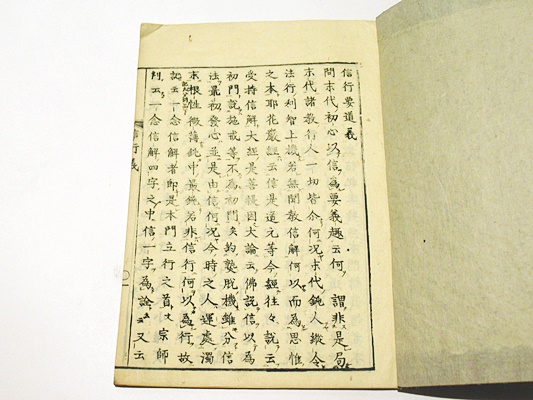 信行要道義
問末代初心以信為要義趣云何 謂非是局
末代諸教行人一切皆尒何况末代鈍人縱令
法行利智上機若無聞教信解何以而為思惟
之本耶花嚴經云信是道元等今經往々説云
受持信解大經是菩提因大論云佛説信以為
初門説施戒等不為初門矣約塾既機雖分信
法最初發心並是由信何况今時之人運處濁
末根性微薄鈍中最鈍若非信行何以為行故
記云一念信解者即是本門立行之首文宗師
判云一念信解四字之中信一字為詮云又云
信行義